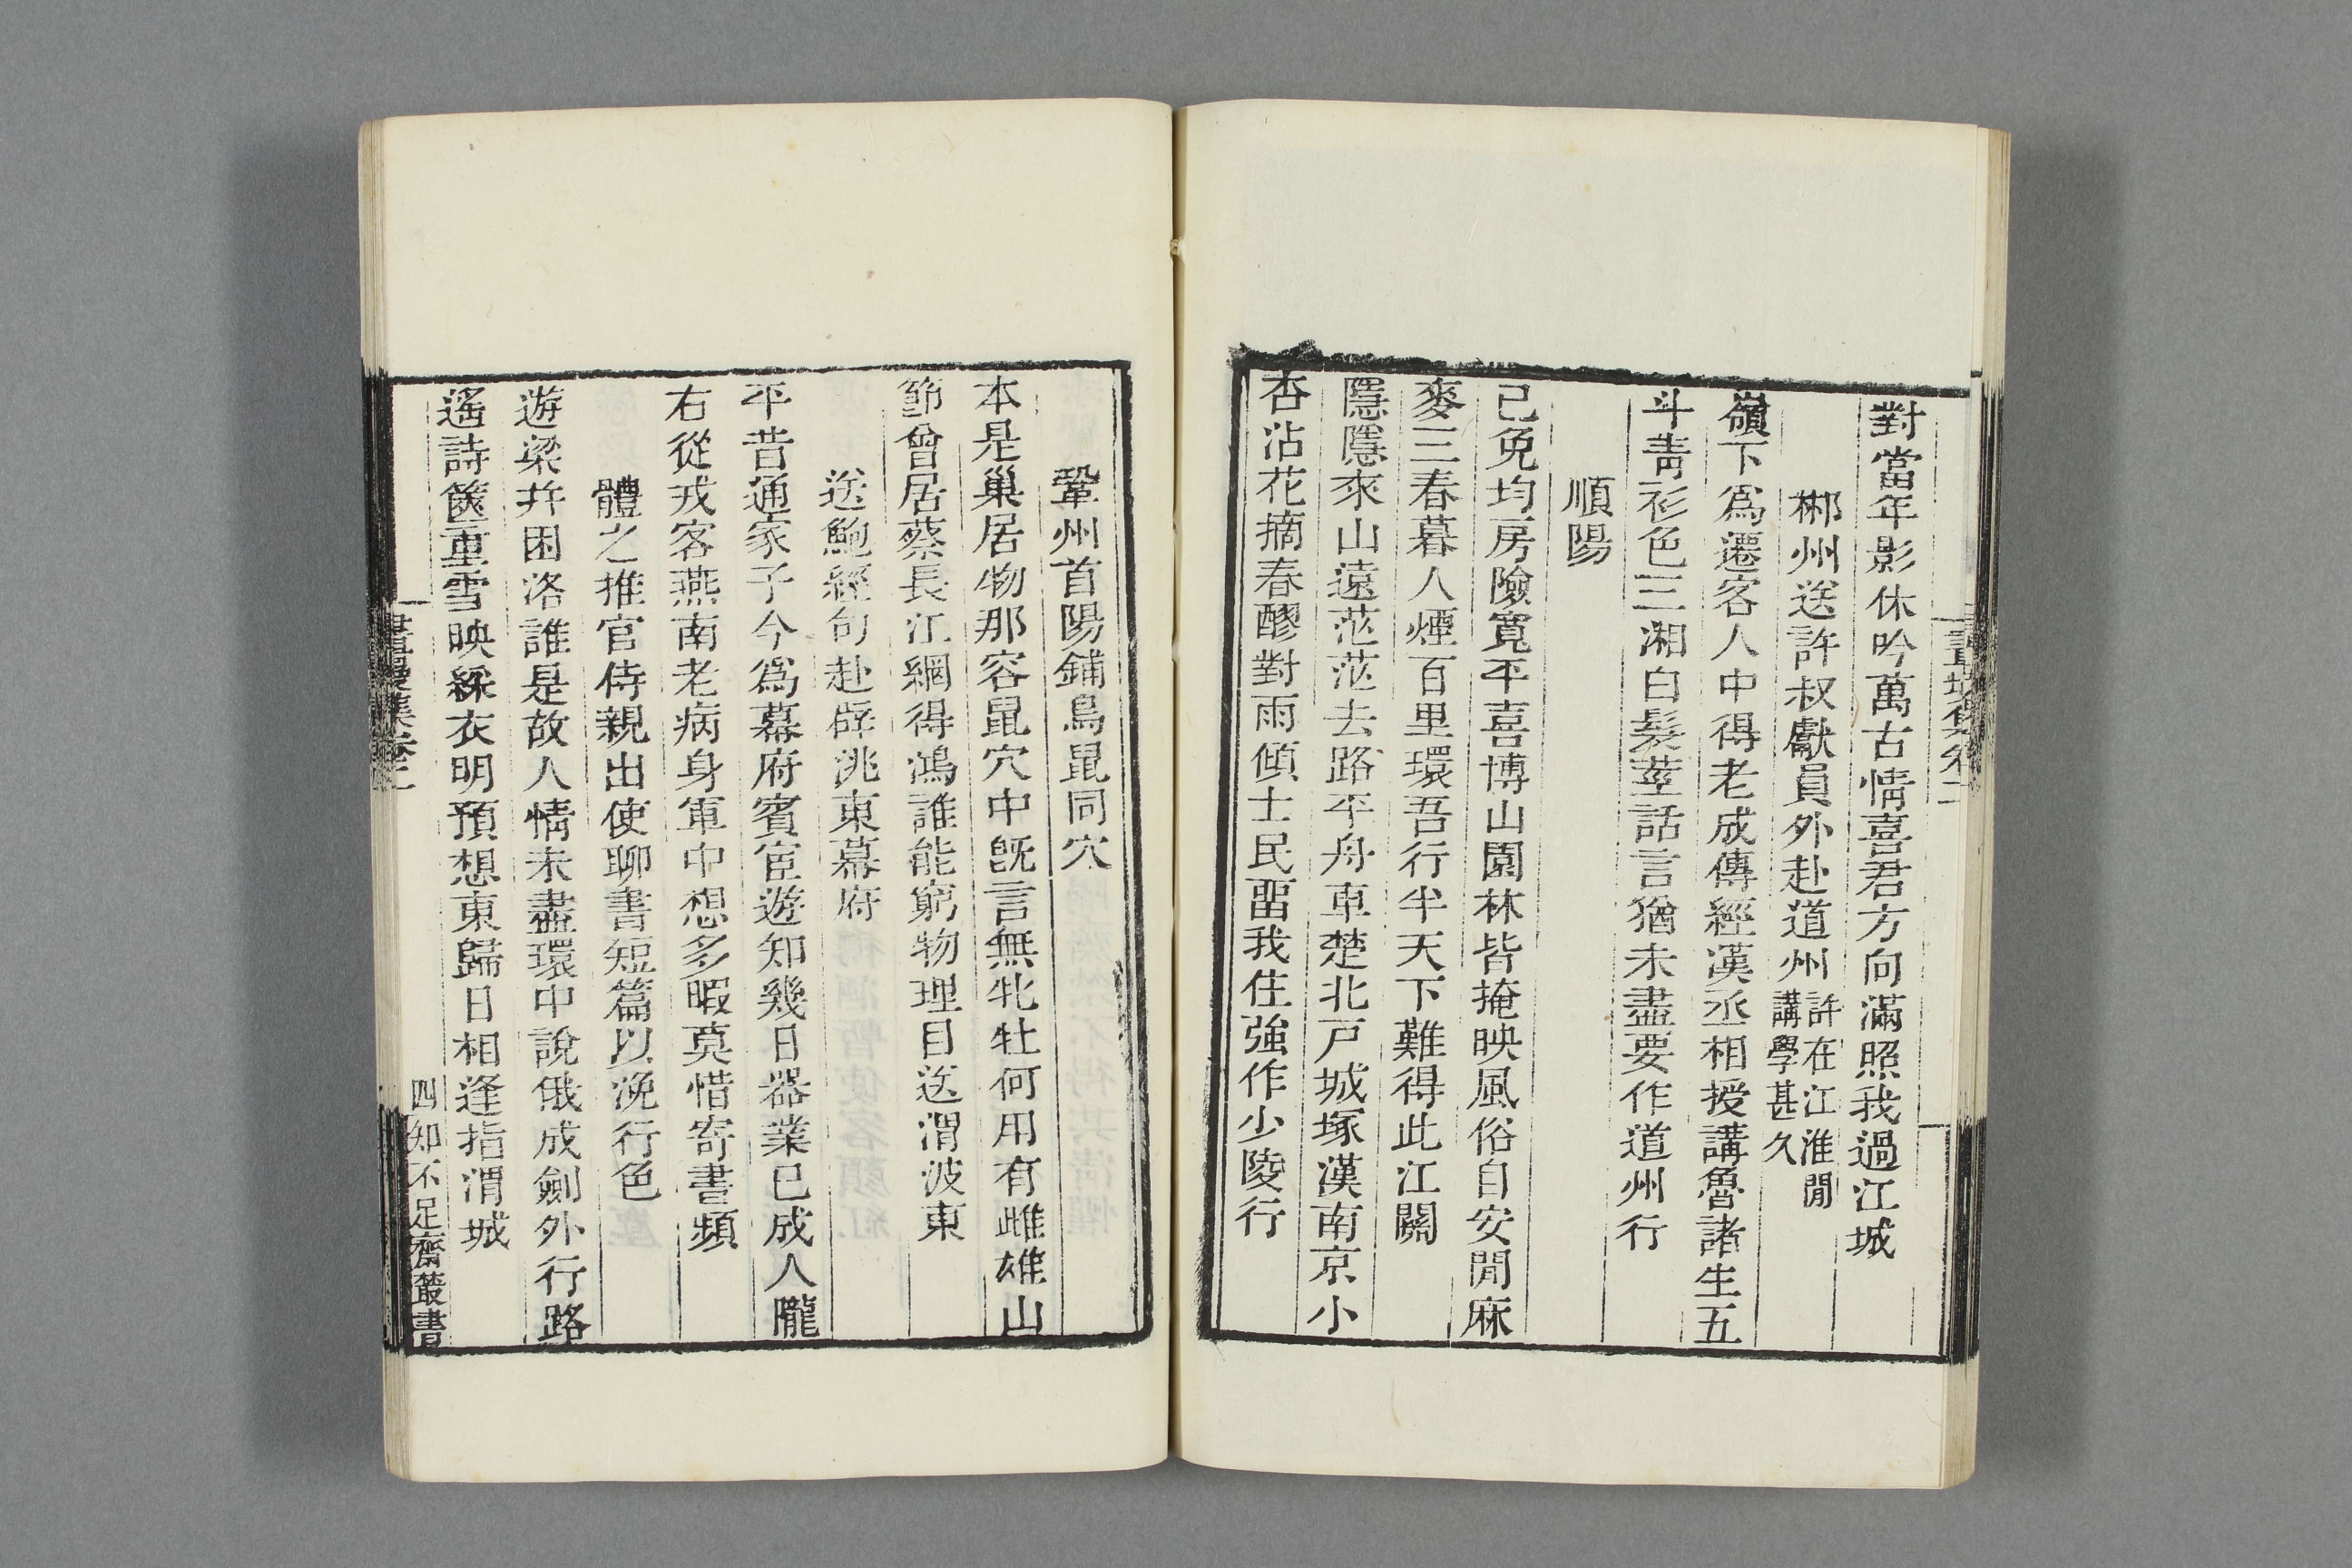 對當年影休吟萬古情喜君方向滿照我過江城
郴州送許叔獻員外赴道州許在江淮閒講學甚久
嶺下爲遷客人中得老成傳經漢丞相授講魯諸生五
斗靑衫色三湘白髮莖話言猶未盡要作道州行
順陽
已免均房險寬平喜博山園林皆掩映風俗自安閒麻
麥三春暮人煙百里環吾行半天下難得此江關
隱隱來山遠茫茫去路平舟車楚北戸城塚漢南京小
杏沾花摘春醪對雨傾士民畱我住強作少陵行
鞏州首陽鋪鳥鼠同穴
本是巢居物那容鼠穴中旣言無牝牡何用有雌雄山
節曾居蔡長江網得鴻誰能窮物理目送渭波東
送鮑經句赴辟洮東幕府
平昔通家子今爲幕府賓宦遊知幾日器業已成人隴
右從戎客燕南老病身軍中想多暇莫惜寄書頻
體之推官侍親出使聊書短篇以浼行色
遊梁并困洛誰是故人情未盡環中說俄成劍外行路
遙詩篋重雪映綵衣明預想東歸日相逢指渭城
畫墁集卷二
四
知不足齋叢書